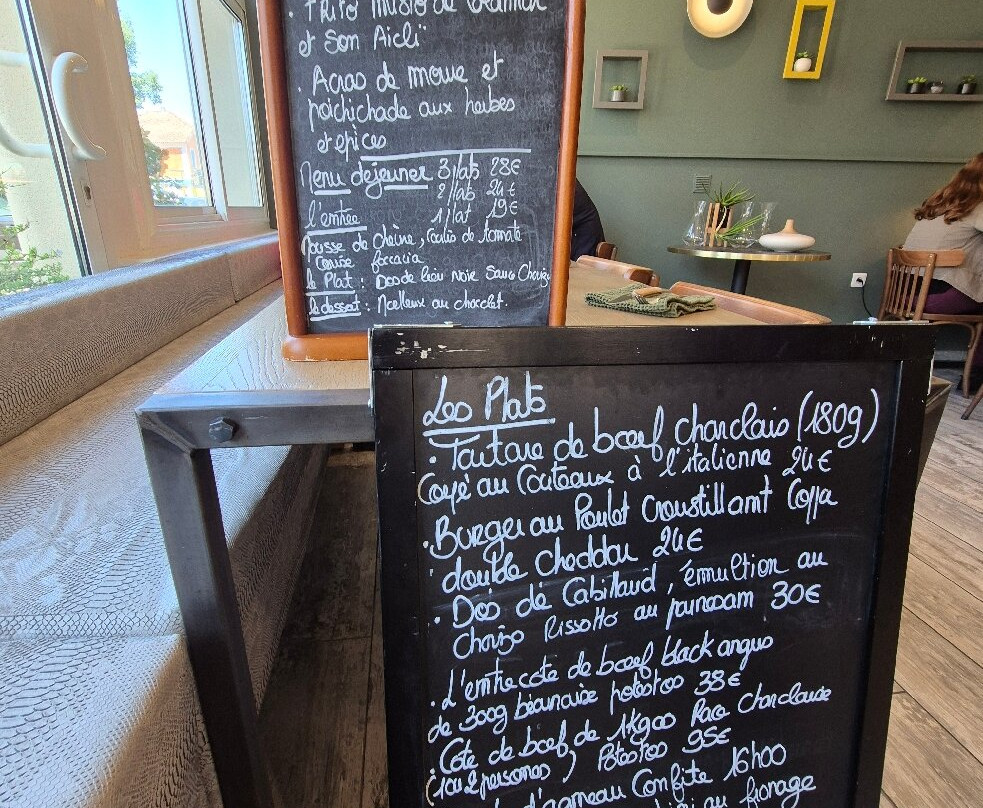 et son Aïoli
. Acras de morue et
poichichade aux herbes
et épices
Menu déjeuner 3 plats 28€
2 plats 24€
l'entrée 1 plat 19€
Mousse de chèvre, Coulis de tomate
foccacia
le Plat : Dos de lieu noir Sauce Chorizo
le dessert : Moelleux au chocolat.
Les Plats
. Tartare de bœuf charolais (180g)
Coupé au Couteaux à l'italienne 24€
. Burger au Poulet croustillant Coppa
double cheddar 24€
. Dos de Cabillaud, émultion au
chorizo Rissotto au parmesam 30€
. L'entrecote de bœuf black angus
de 300g béarnaise potatoes 38€
. Cote de bœuf de 1kg00 Race Charolaise
(1 ou 2 personnes) Potatoes 95€
d'agneau Confite 16h00
au fromage